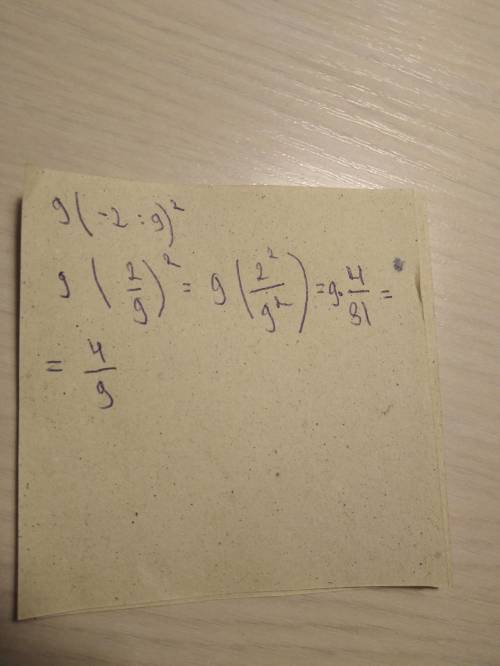 9(-2:9)²
9 (2/9)² = 9(2²/9²) = 9·4/81 =
= 4/9